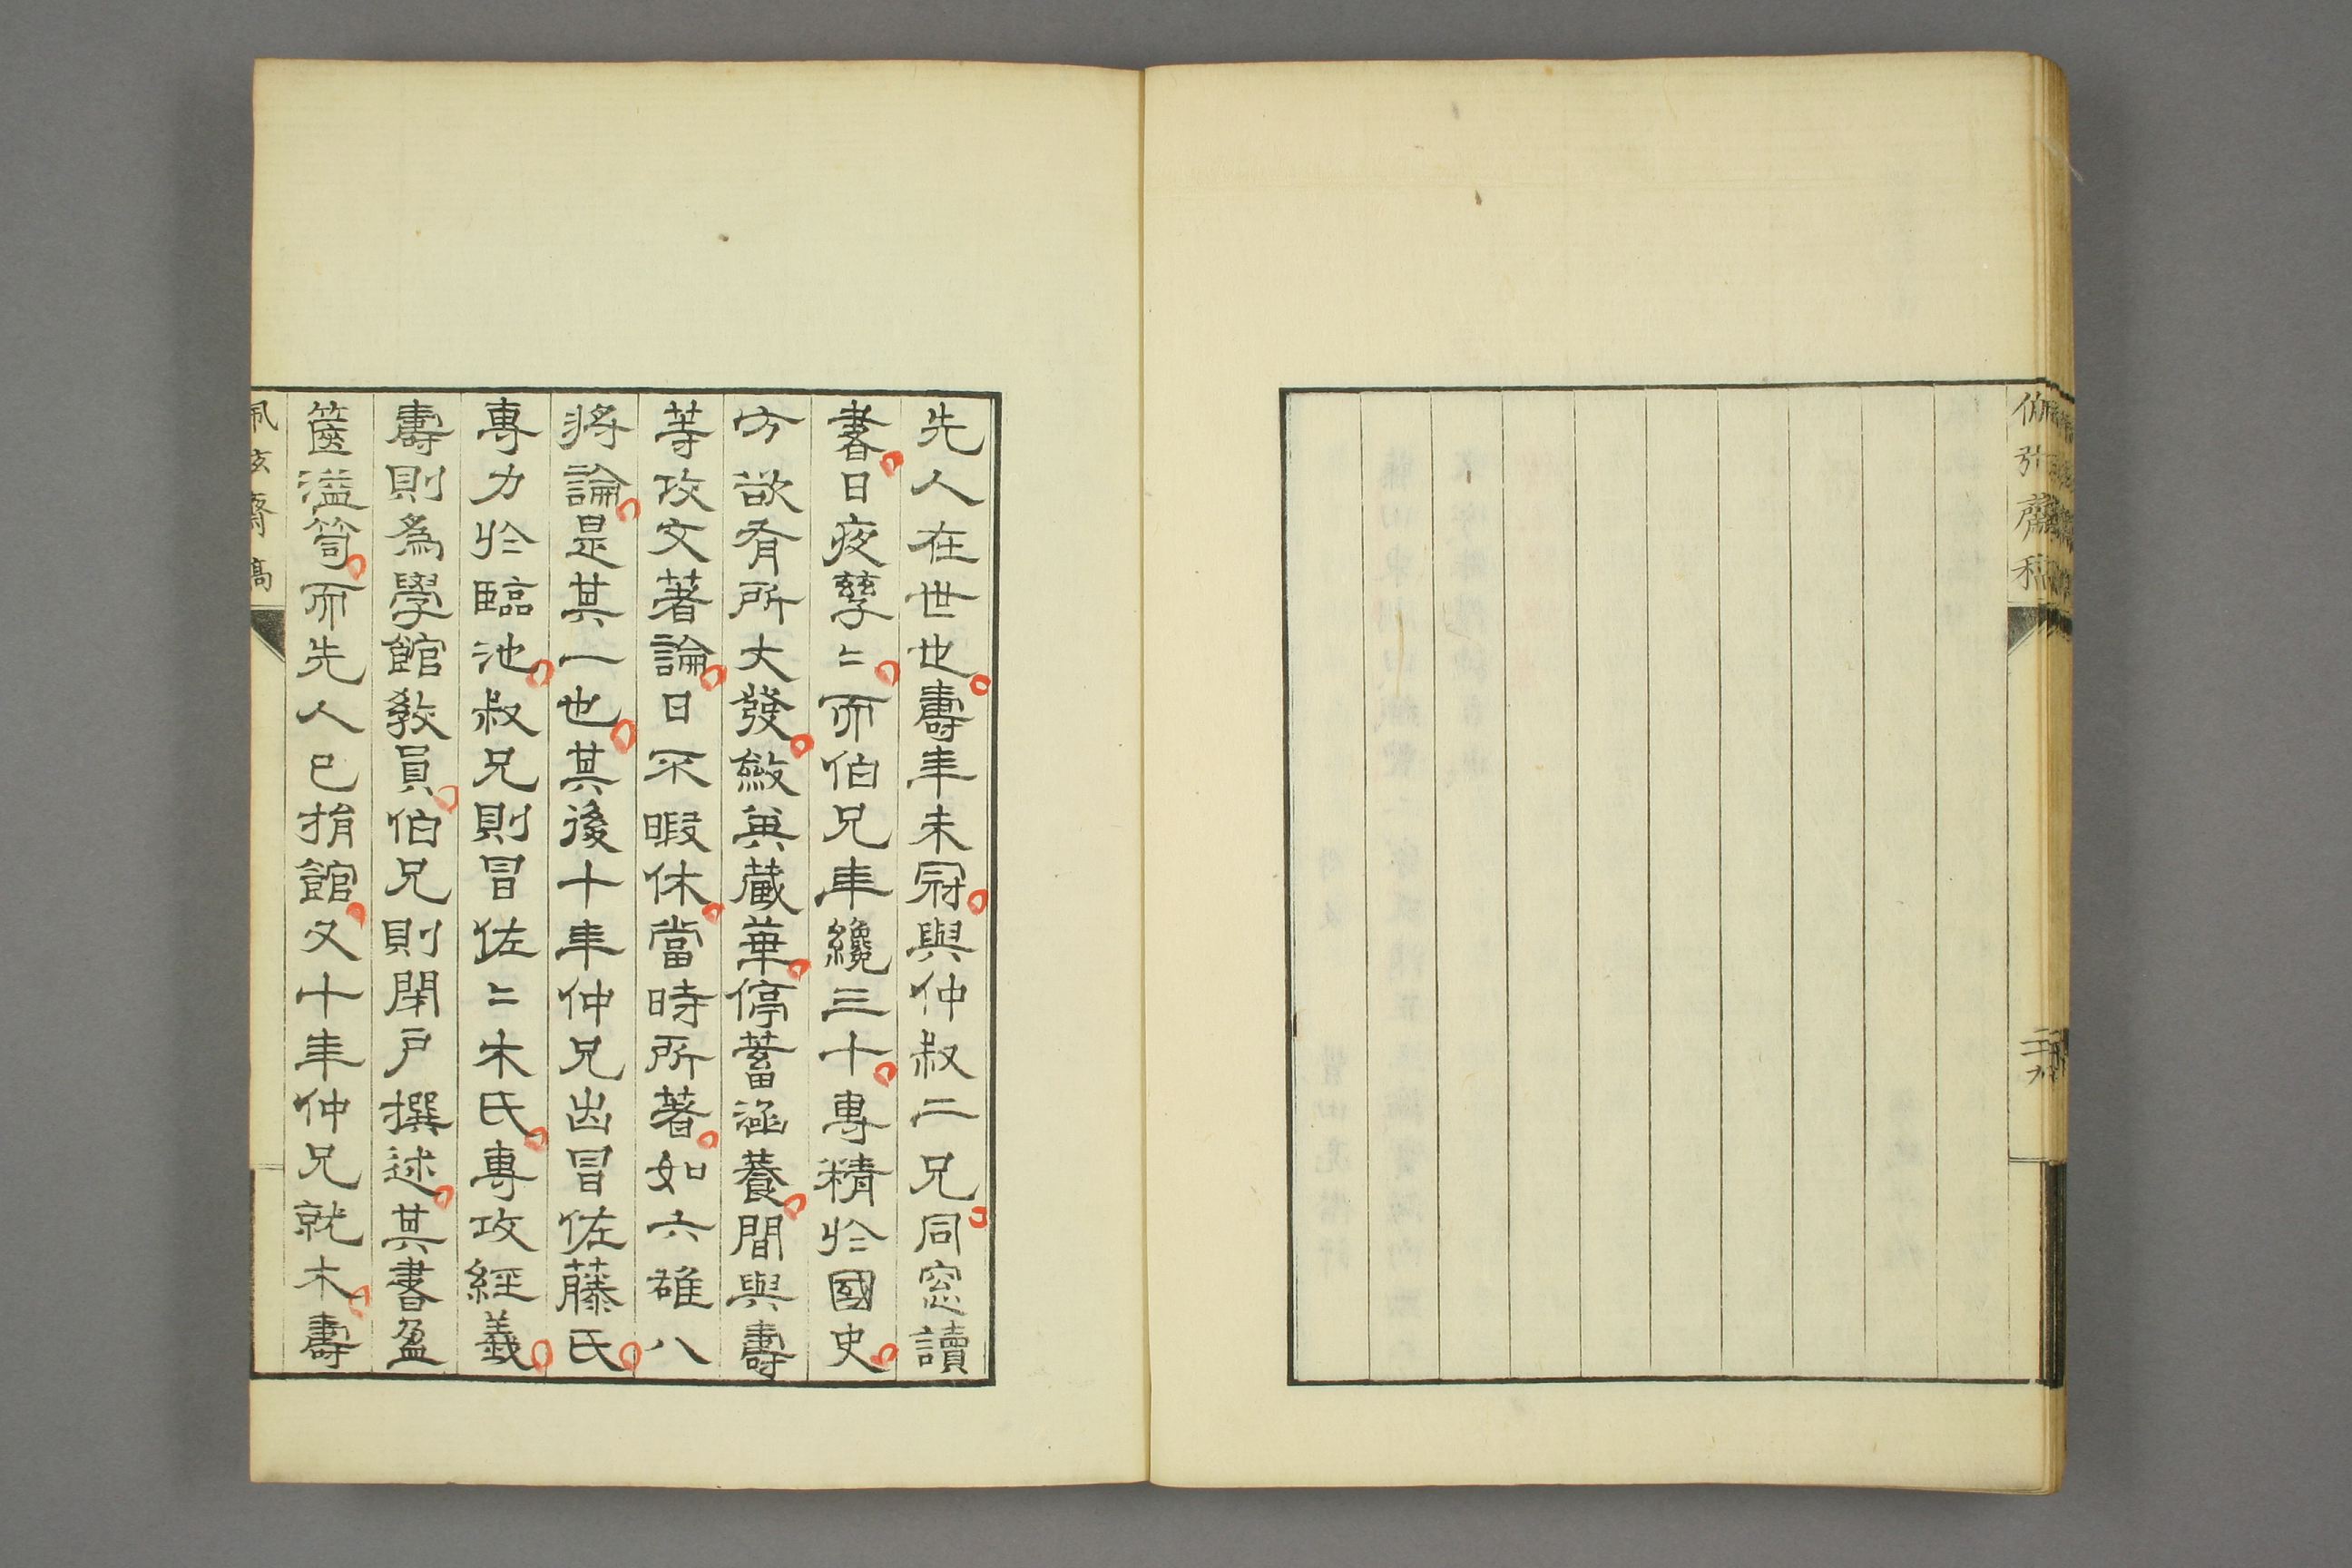 先人在世也壽年未冠與仲叔二兄同窓讀
書日夜孳〻而伯兄年纔三十專精於國史
方欲有所大發斂與藏華停蓄涵養間與壽
等攻文著論日不暇休當時所著如六雄八
將論是其一也其後十年仲兄出冒佐藤氏
專力於臨池叔兄則冒佐〻木氏專攻經義
壽則為學館教員伯兄則閉戶撰述其書盈
篋溢笥而先人已捐館又十年仲兄就木壽
佩弦齋稿